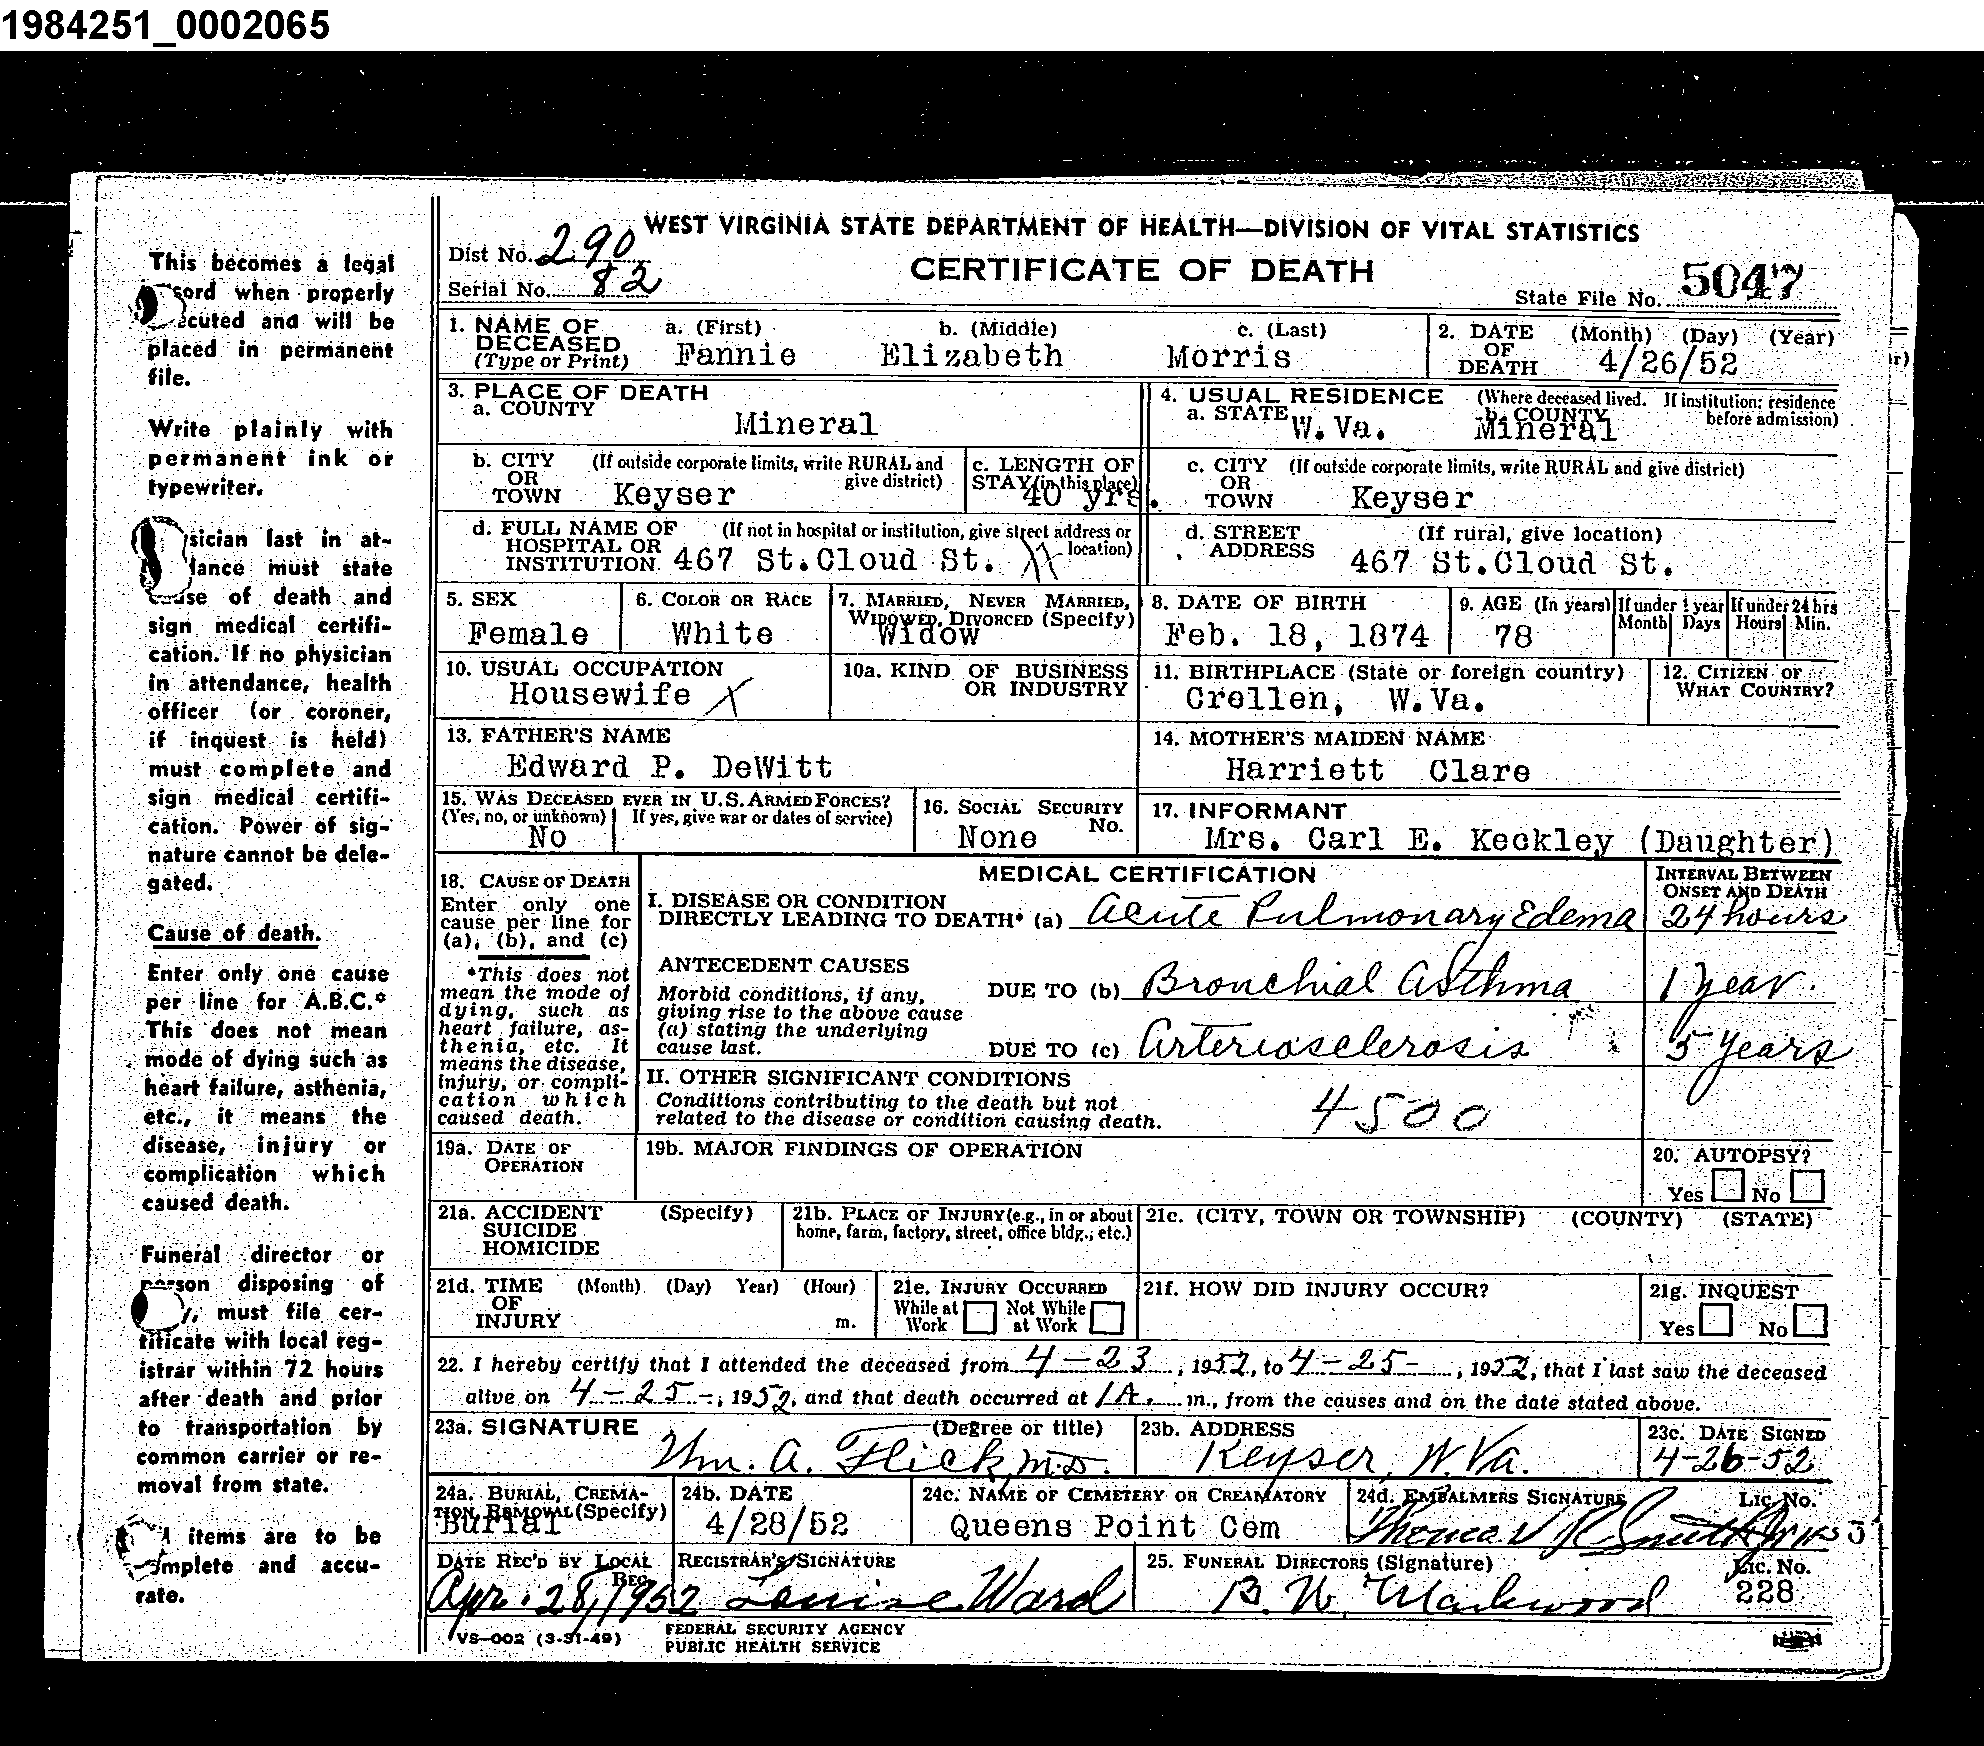 1984251_0002065
This becomes a legal
cord when properly
ecuted and will be
placed in permanent
file.
Write plainly with
permanent ink or
typewriter.
sician last in at-
dance must state
cause of death and
sign medical certifi-
cation. If no physician
in attendance, health
officer (or coroner,
if inquest is held)
must complete and
sign medical certifi-
cation. Power of sig-
nature cannot be dele-
gated.
Cause of death.
Enter only one cause
per line for A.B.C.*
This does not mean
mode of dying such as
heart failure, asthenia,
etc., it means the
disease, injury or
complication which
caused death.
Funeral director or
person disposing of
must file cer-
tificate with local reg-
istrar within 72 hours
after death and prior
to transportation by
common carrier or re-
moval from state.
items are to be
omplete and accu-
rate.
WEST VIRGINIA STATE DEPARTMENT OF HEALTH—DIVISION OF VITAL STATISTICS
Dist No. 290
CERTIFICATE OF DEATH
Serial No. 82
State File No. 5047
1. NAME OF DECEASED (Type or Print) a. (First) b. (Middle) c. (Last)
Fannie Elizabeth Morris
2. DATE OF DEATH (Month) (Day) (Year)
4/26/52
3. PLACE OF DEATH
a. COUNTY
Mineral
4. USUAL RESIDENCE (Where deceased lived. If institution: residence before admission)
a. STATE W.Va. b. COUNTY Mineral
b. CITY OR TOWN (If outside corporate limits, write RURAL and give district)
Keyser
c. LENGTH OF STAY (in this place)
40 yrs.
c. CITY OR TOWN (If outside corporate limits, write RURAL and give district)
Keyser
d. FULL NAME OF HOSPITAL OR INSTITUTION (If not in hospital or institution, give street address or location)
467 St.Cloud St.
d. STREET ADDRESS (If rural, give location)
467 St.Cloud St.
5. SEX
Female
6. COLOR OR RACE
White
7. MARRIED, NEVER MARRIED, WIDOWED, DIVORCED (Specify)
Widow
8. DATE OF BIRTH
Feb. 18, 1874
9. AGE (In years) If under 1 year If under 24 hrs
Month Days Hours Min.
78
10. USUAL OCCUPATION
Housewife X
10a. KIND OF BUSINESS OR INDUSTRY
11. BIRTHPLACE (State or foreign country)
Crellen, W.Va.
12. CITIZEN OF WHAT COUNTRY?
13. FATHER'S NAME
Edward P. DeWitt
14. MOTHER'S MAIDEN NAME
Harriett Clare
15. WAS DECEASED EVER IN U.S. ARMED FORCES?
(Yes, no, or unknown) If yes, give war or dates of service)
No
16. SOCIAL SECURITY No.
None
17. INFORMANT
Mrs. Carl E. Keckley (Daughter)
18. CAUSE OF DEATH
Enter only one
cause per line for
(a), (b), and (c)
*This does not
mean the mode of
dying, such as
heart failure, as-
thenia, etc. It
means the disease,
injury, or compli-
cation which
caused death.
MEDICAL CERTIFICATION
INTERVAL BETWEEN ONSET AND DEATH
I. DISEASE OR CONDITION
DIRECTLY LEADING TO DEATH* (a) Acute Pulmonary Edema 24 hours
ANTECEDENT CAUSES
Morbid conditions, if any,
giving rise to the above cause
(a) stating the underlying
cause last.
DUE TO (b) Bronchial Asthma 1 year.
DUE TO (c) Arteriosclerosis 5 years
II. OTHER SIGNIFICANT CONDITIONS
Conditions contributing to the death but not
related to the disease or condition causing death.
4500
19a. DATE OF OPERATION
19b. MAJOR FINDINGS OF OPERATION
20. AUTOPSY?
Yes No
21a. ACCIDENT SUICIDE HOMICIDE (Specify)
21b. PLACE OF INJURY (e.g., in or about
home, farm, factory, street, office bldg., etc.)
21c. (CITY, TOWN OR TOWNSHIP) (COUNTY) (STATE)
21d. TIME OF INJURY (Month) (Day) Year) (Hour)
m.
21e. INJURY OCCURRED
While at Work Not While at Work
21f. HOW DID INJURY OCCUR?
21g. INQUEST
Yes No
22. I hereby certify that I attended the deceased from 4-23, 1952, to 4-25-, 1952, that I last saw the deceased
alive on 4-25-, 1952, and that death occurred at 1A. m., from the causes and on the date stated above.
23a. SIGNATURE (Degree or title)
Wm. A. Flick, M.D.
23b. ADDRESS
Keyser, W.Va.
23c. DATE SIGNED
4-26-52
24a. BURIAL, CREMA-
TION, REMOVAL (Specify)
Burial
24b. DATE
4/28/52
24c. NAME OF CEMETERY OR CREAMATORY
Queens Point Cem
24d. EMBALMERS SIGNATURE Lic. No.
Thomas R. Smith
DATE REC'D BY LOCAL REG.
Apr. 28, 1952
REGISTRAR'S SIGNATURE
Louise Ward
25. FUNERAL DIRECTORS (Signature) Lic. No.
B. W. Markwood 228
VS-002 (3-31-49)
FEDERAL SECURITY AGENCY
PUBLIC HEALTH SERVICE